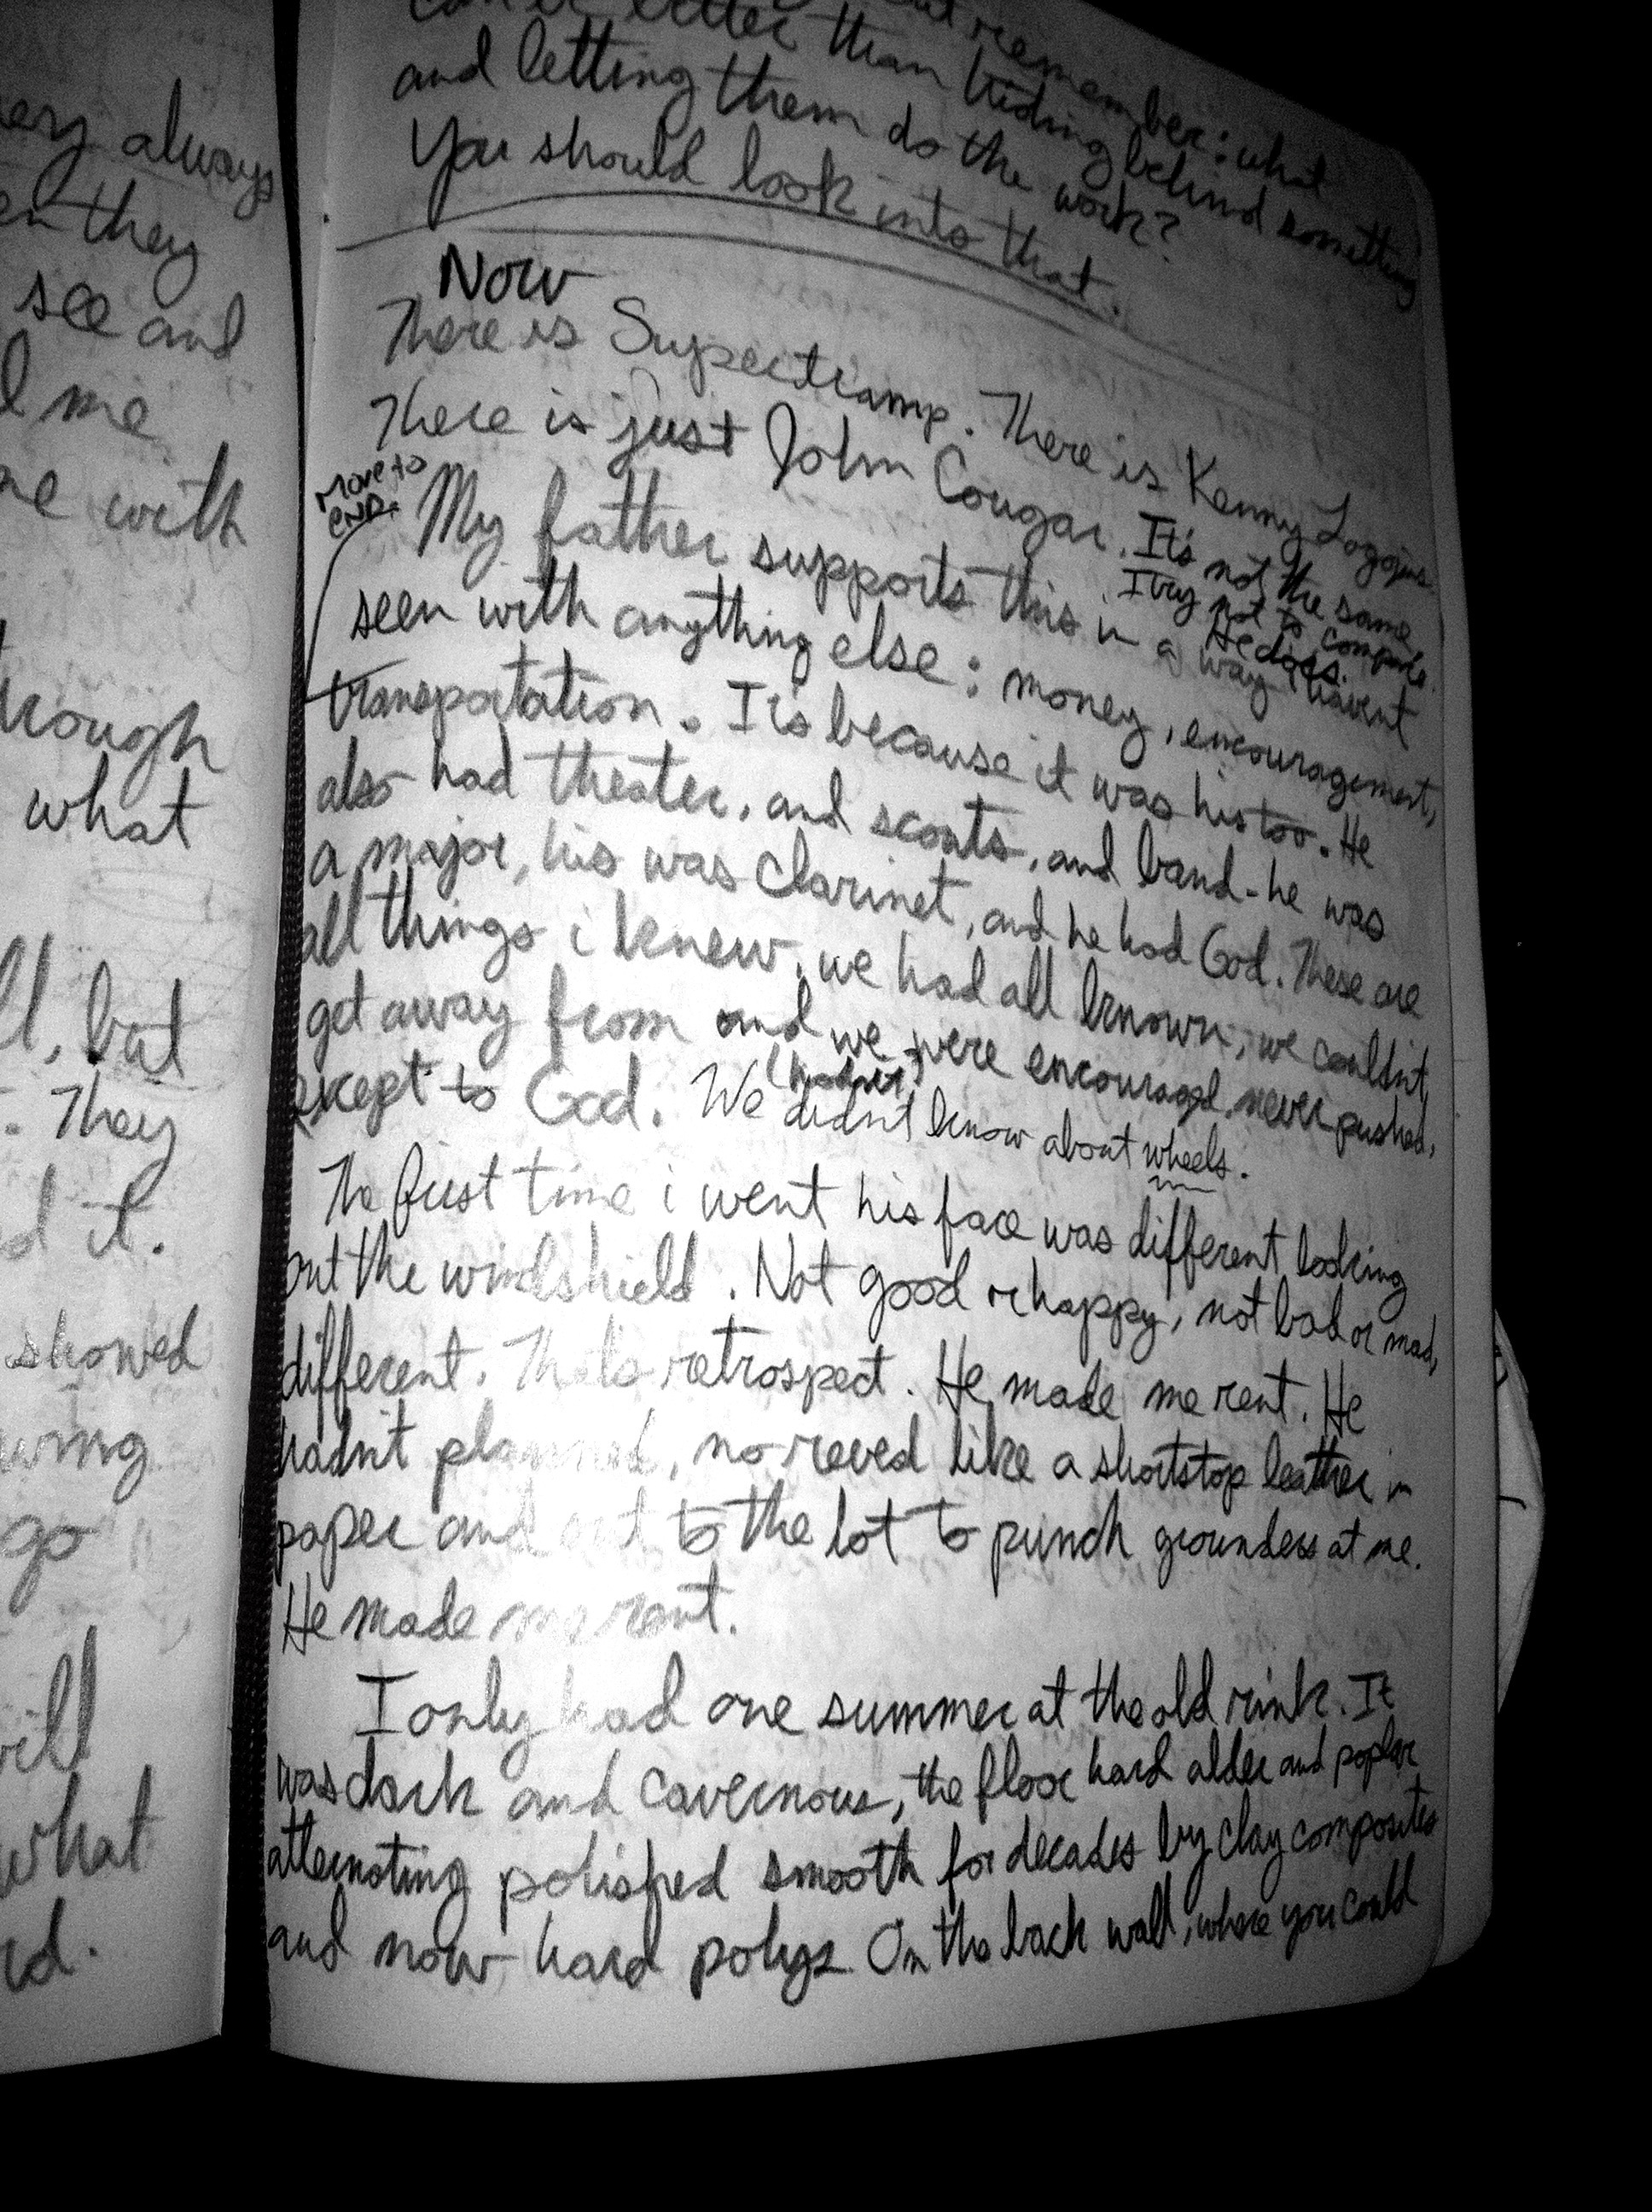 ery always
en they
see and
d me
ne with
rough
what
ll, but
. They
d it.
showed
wing
go
will
what
d.
remember: what
better than hiding behind something
and letting them do the work?
You should look into that.
Now
There is Supertramp. There is Kenny Loggins
There is just John Cougar. It's not the same
I try not to compare.
He does.
Move to
end.
My father supports this in a way I havent
seen with anything else: money, encouragement,
transportation. It's because it was his too. He
also had theater, and scouts, and band - he was
a major, his was clarinet, and he had God. These are
all things i knew, we had all known, we couldn't
get away from and we were encouraged, never pushed,
except to God. We didn't know about wheels.
The first time i went his face was different looking
out the windshield. Not good or happy, not bad or mad,
different. Thats retrospect. He made me rent. He
hadn't planned, no reved like a shortstop leather in
paper and out to the lot to punch grounders at me.
He made me rent.
I only had one summer at the old rink. It
was dark and cavernous, the floor hard alder and poplar
alternating polished smooth for decades by clay composites
and now hard polys. On the back wall, where you could